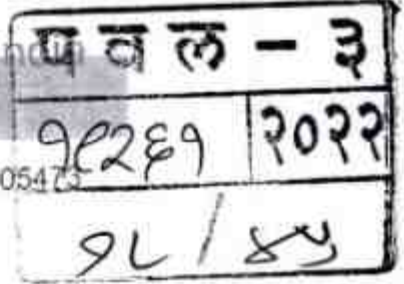 पवल - ३
१९२६१ २०२२
05473
१८ / ४५